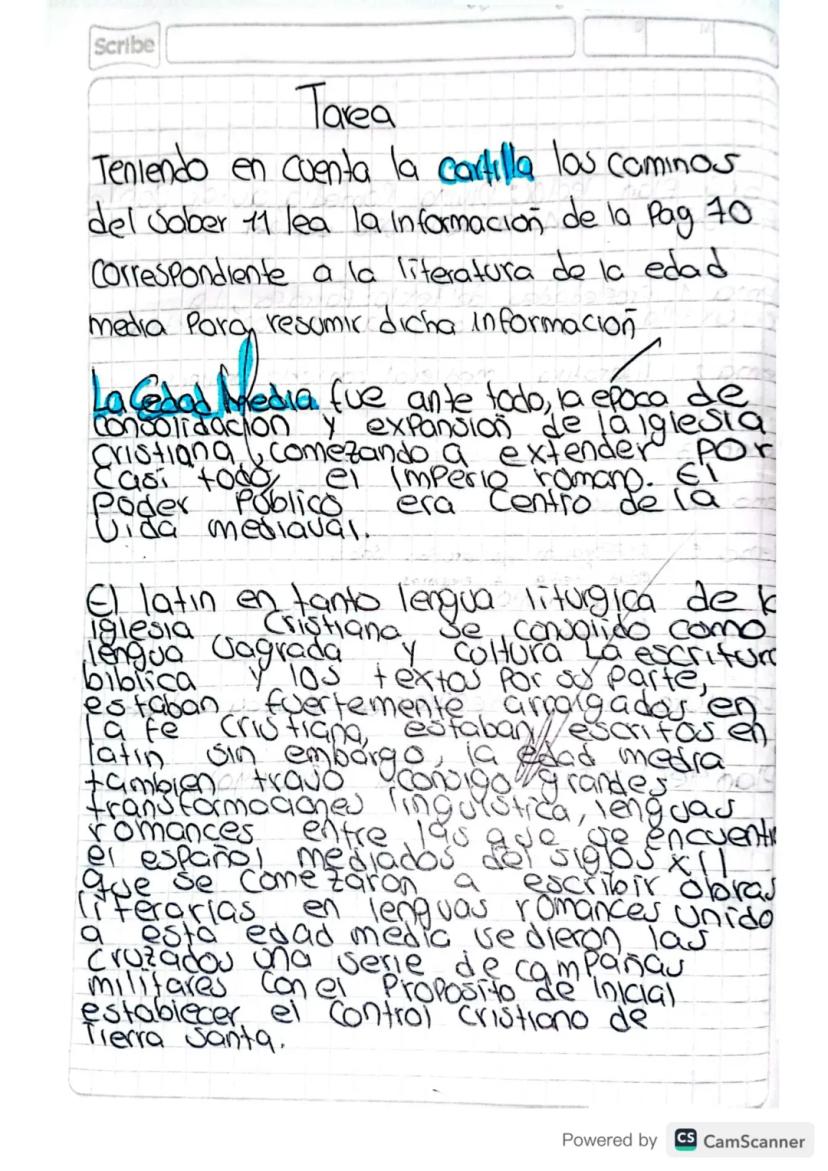 Scribe
Tarea
Teniendo en cuenta la cartilla los caminos
del saber 11 lea la informacioñ de la Pag 70
correspondiente a la literatura de la edad
media Para resumir dicha informacioñ
La edad Media fue ante todo, la epoca de
consolidacion y expansioñ de la iglesia
cristiana, comezando a extender por
casi todo, el Imperio romano. El
Poder Público era Centro de la
Vida mediaval.
El latin en tanto lengua liturgica de l
iglesia Cristiana se consolido como
lengua sagrada y coltura La escritura
biblica y los textos por su parte,
estaban fuertemente arraigados en
la fe cristiana, estaban escritos en
latin sin embargo, la edad media
tambien trajo consigo grandes
transformaciones linguistica, lenguas
romances entre las que se encuentr
el español mediados del siglos XII
que se comezaron a escribir obras
literarias en lenguas romances unido
a esta edad media se dieron las
cruzados una serie de campañas
militares con el Proposito de inicial
establecer el control cristiano de
Tierra santa.
Powered by CS CamScanner